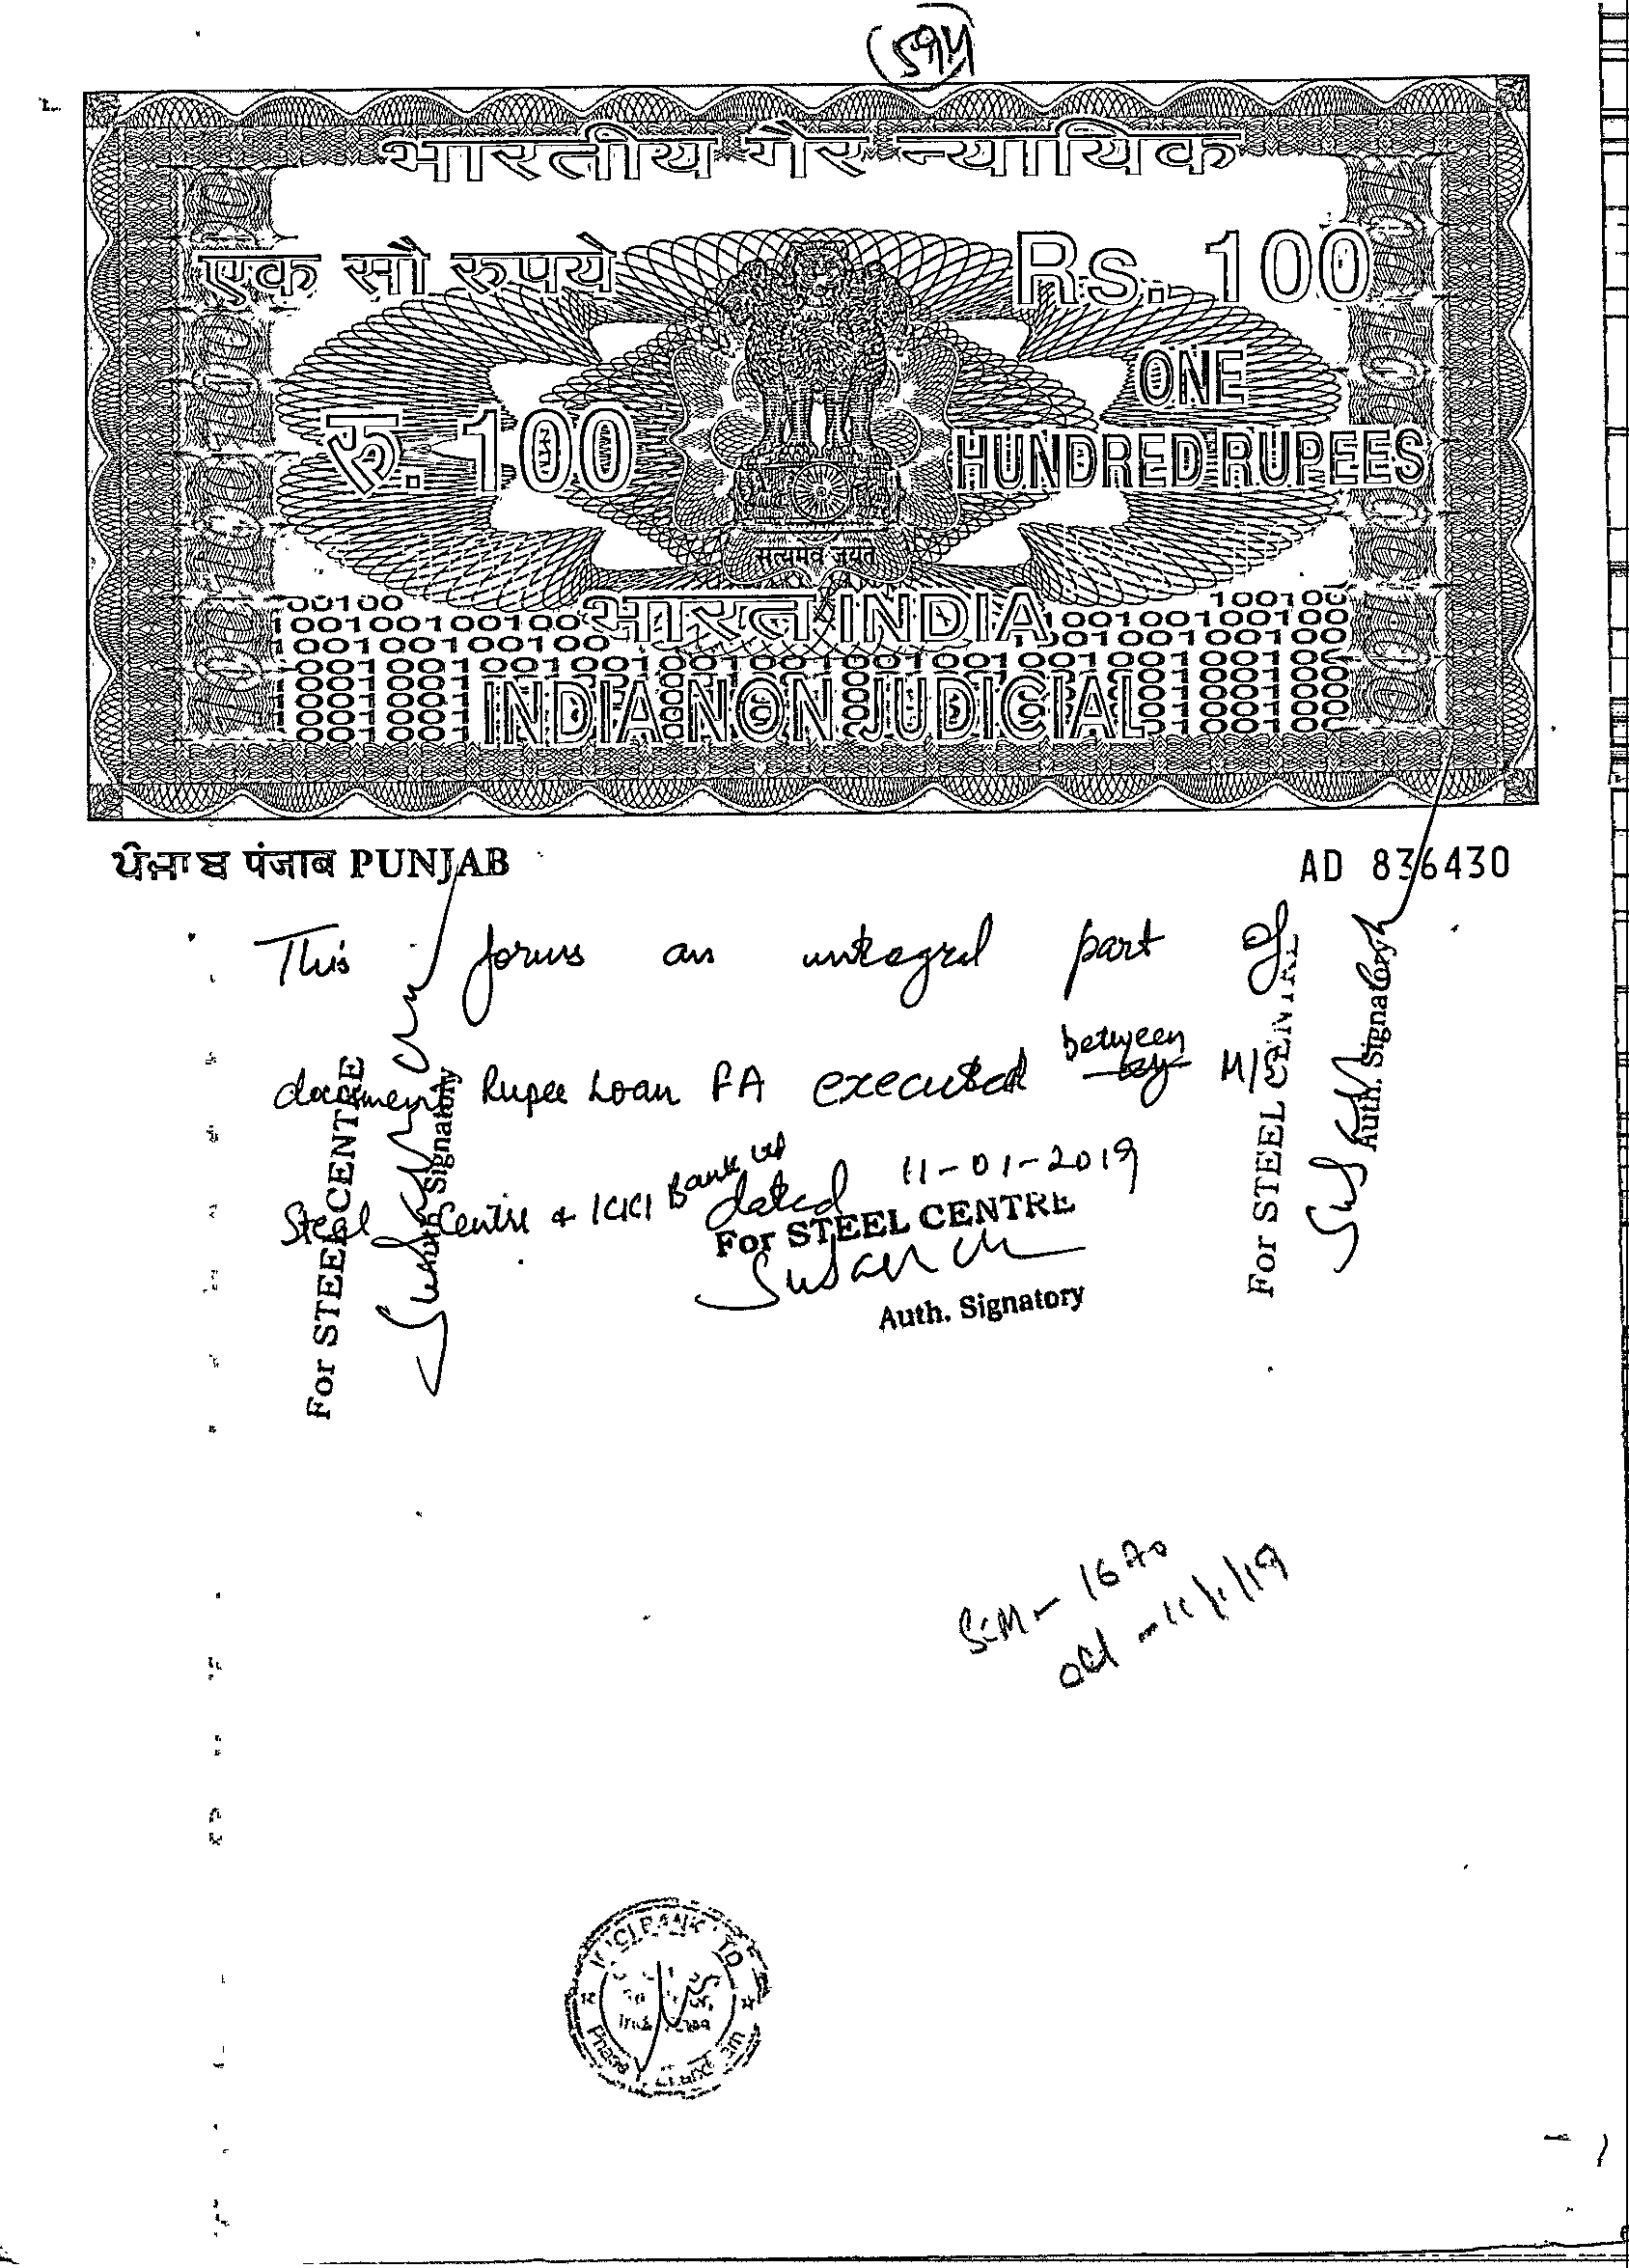 594
भारतीय गैर न्यायिक
एक सौ रुपये
Rs. 100
रु. 100
ONE
HUNDRED RUPEES
सत्यमेव जयते
भारत INDIA
INDIA NON JUDICIAL
ਪੰਜਾਬ पंजाब PUNJAB
AD 836430
This forms an integral part of
document Rupee Loan FA executed between by M/S
Steel Centre & ICICI Bank Ltd dated 11-01-2019
For STEEL CENTRE
Auth. Signatory
For STEEL CENTRE
Auth. Signatory
For STEEL CENTRE
Auth. Signatory
11/1/19
ICICI BANK LTD
Phase